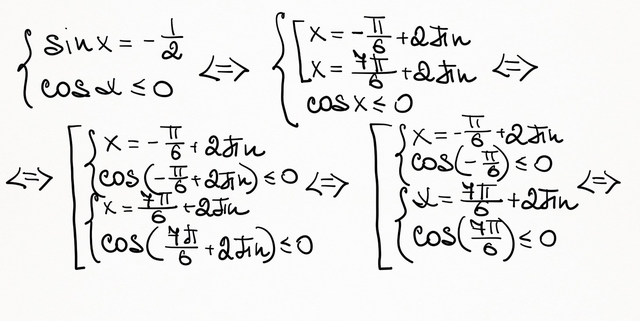 { sin x = -1/2 ; cos x ≤ 0 <=> { [ x = -π/6 + 2πn ; x = 7π/6 + 2πn ; cos x ≤ 0 <=>
<=> [ { x = -π/6 + 2πn ; cos(-π/6 + 2πn) ≤ 0 ; { x = 7π/6 + 2πn ; cos(7π/6 + 2πn) ≤ 0 <=> [ { x = -π/6 + 2πn ; cos(-π/6) ≤ 0 ; { x = 7π/6 + 2πn ; cos(7π/6) ≤ 0 <=>